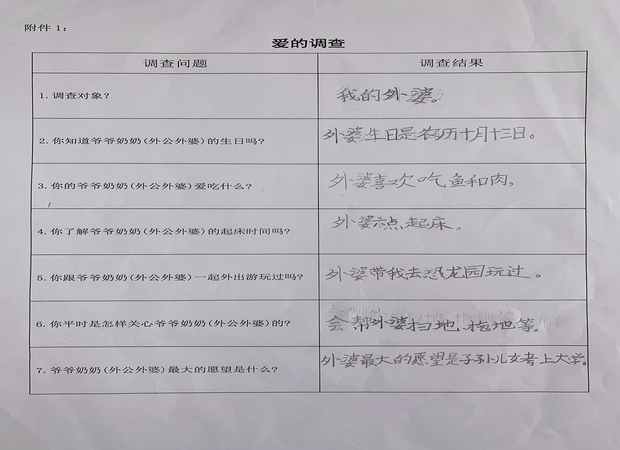 附件 1：
爱的调查
调查问题 调查结果
1. 调查对象？ 我的外婆。
2. 你知道爷爷奶奶(外公外婆)的生日吗？ 外婆生日是农历十月十三日。
3. 你的爷爷奶奶(外公外婆)爱吃什么？ 外婆喜欢吃鱼和肉。
4. 你了解爷爷奶奶(外公外婆)的起床时间吗？ 外婆六点起床。
5. 你跟爷爷奶奶(外公外婆)一起外出游玩过吗？ 外婆带我去恐龙园玩过。
6. 你平时是怎样关心爷爷奶奶(外公外婆)的？ 会帮外婆扫地、拖地等。
7. 爷爷奶奶(外公外婆)最大的愿望是什么？ 外婆最大的愿望是子孙儿女考上大学。